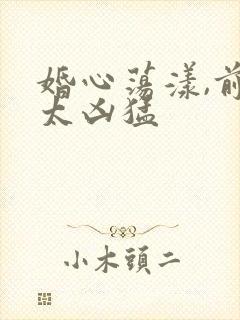 婚心荡漾,前
太凶猛
小木頭二